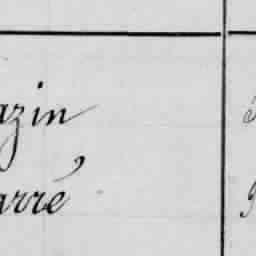 azin
arré